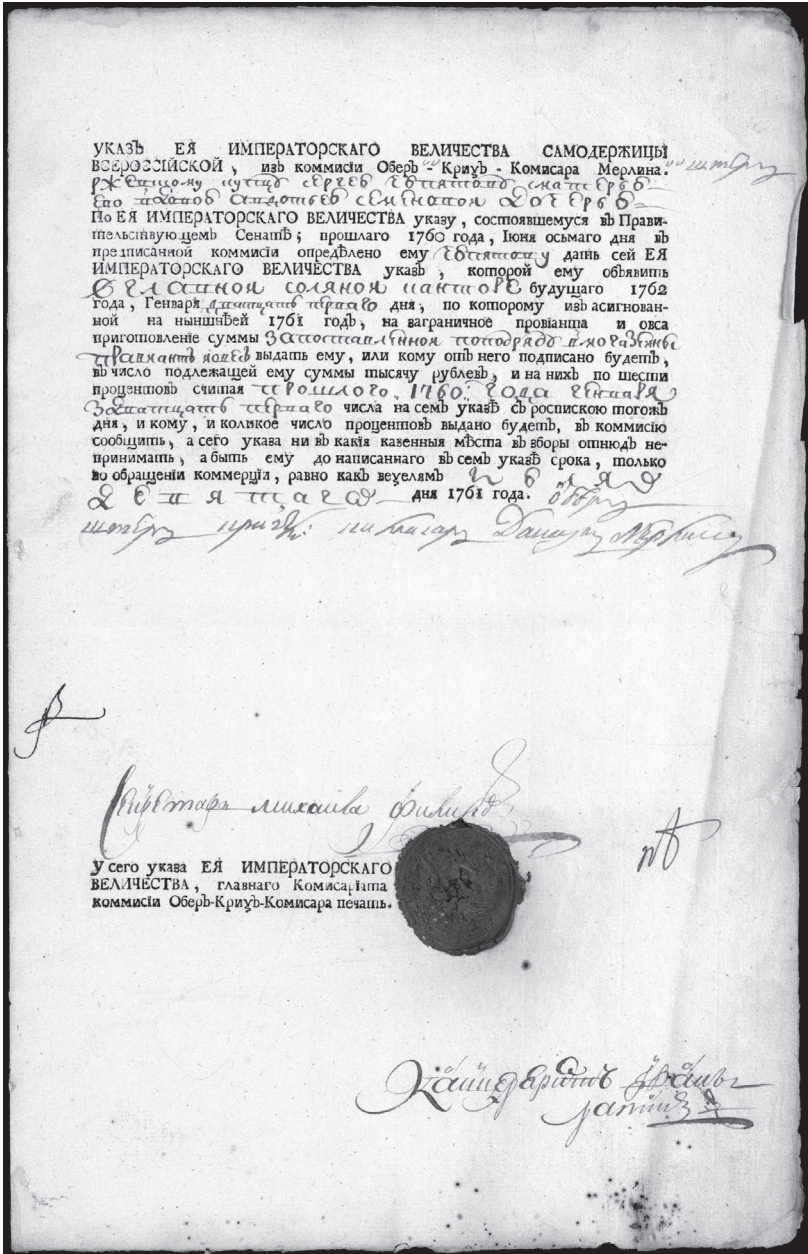 УКАЗЪ ЕЯ ИМПЕРАТОРСКАГО ВЕЛИЧЕСТВА САМОДЕРЖИЦЫ
ВСЕРОССІЙСКОЙ, изъ коммисіи Оберъ-Крихъ-Комисара Мерлина.
ржевшому купцу сергею
его семеновои дочерью
По ЕЯ ИМПЕРАТОРСКАГО ВЕЛИЧЕСТВА указу, состоявшемуся въ Прави-
тельствующемъ Сенатѣ; прошлаго 1760 года, Іюня осьмаго дня въ
предписанной коммисіи опредѣлено ему дать сей ЕЯ
ИМПЕРАТОРСКАГО ВЕЛИЧЕСТВА указъ, которой ему объявить
в главной соляной канторе будущаго 1762
года, Генваря дватцать перваго дня, по которому изъ асигнован-
ной на нынѣшней 1761 годъ, на заграничное провіанта и овса
приготовленіе суммы запоставленной поподряду вмагазейны
правиантъ выдать ему, или кому отъ него подписано будетъ,
въ число подлежащей ему суммы тысячу рублевъ, и на нихъ по шести
процентовъ считая прошлого 1760: года генваря
здватцать перваго числа на семъ указѣ съ роспискою тогожъ
дня, и кому, и коликое число процентовъ выдано будетъ, въ коммисію
сообщить, а сего указа ни въ какія казенныя мѣста въ зборы отнюдъ не-
принимать, а быть ему до написаннаго въ семъ указѣ срока, только
во обращеніи коммерціи, равно какъ векселямъ
девятагѡ дня 1761 года.
Секретарь михаила
У сего указа ЕЯ ИМПЕРАТОРСКАГО
ВЕЛИЧЕСТВА, главнаго Комисаріата
коммисіи Оберъ-Крихъ-Комисара печать.
Канцеляристъ